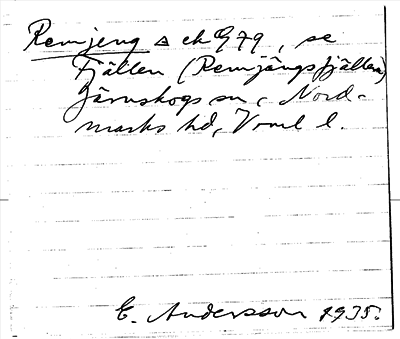 Remjeng △ ek G79, se
Fjällen (Remjängsfjällen)
Järnskogs sn, Nord-
marks hd, Vrml l.
E. Andersson 1935.